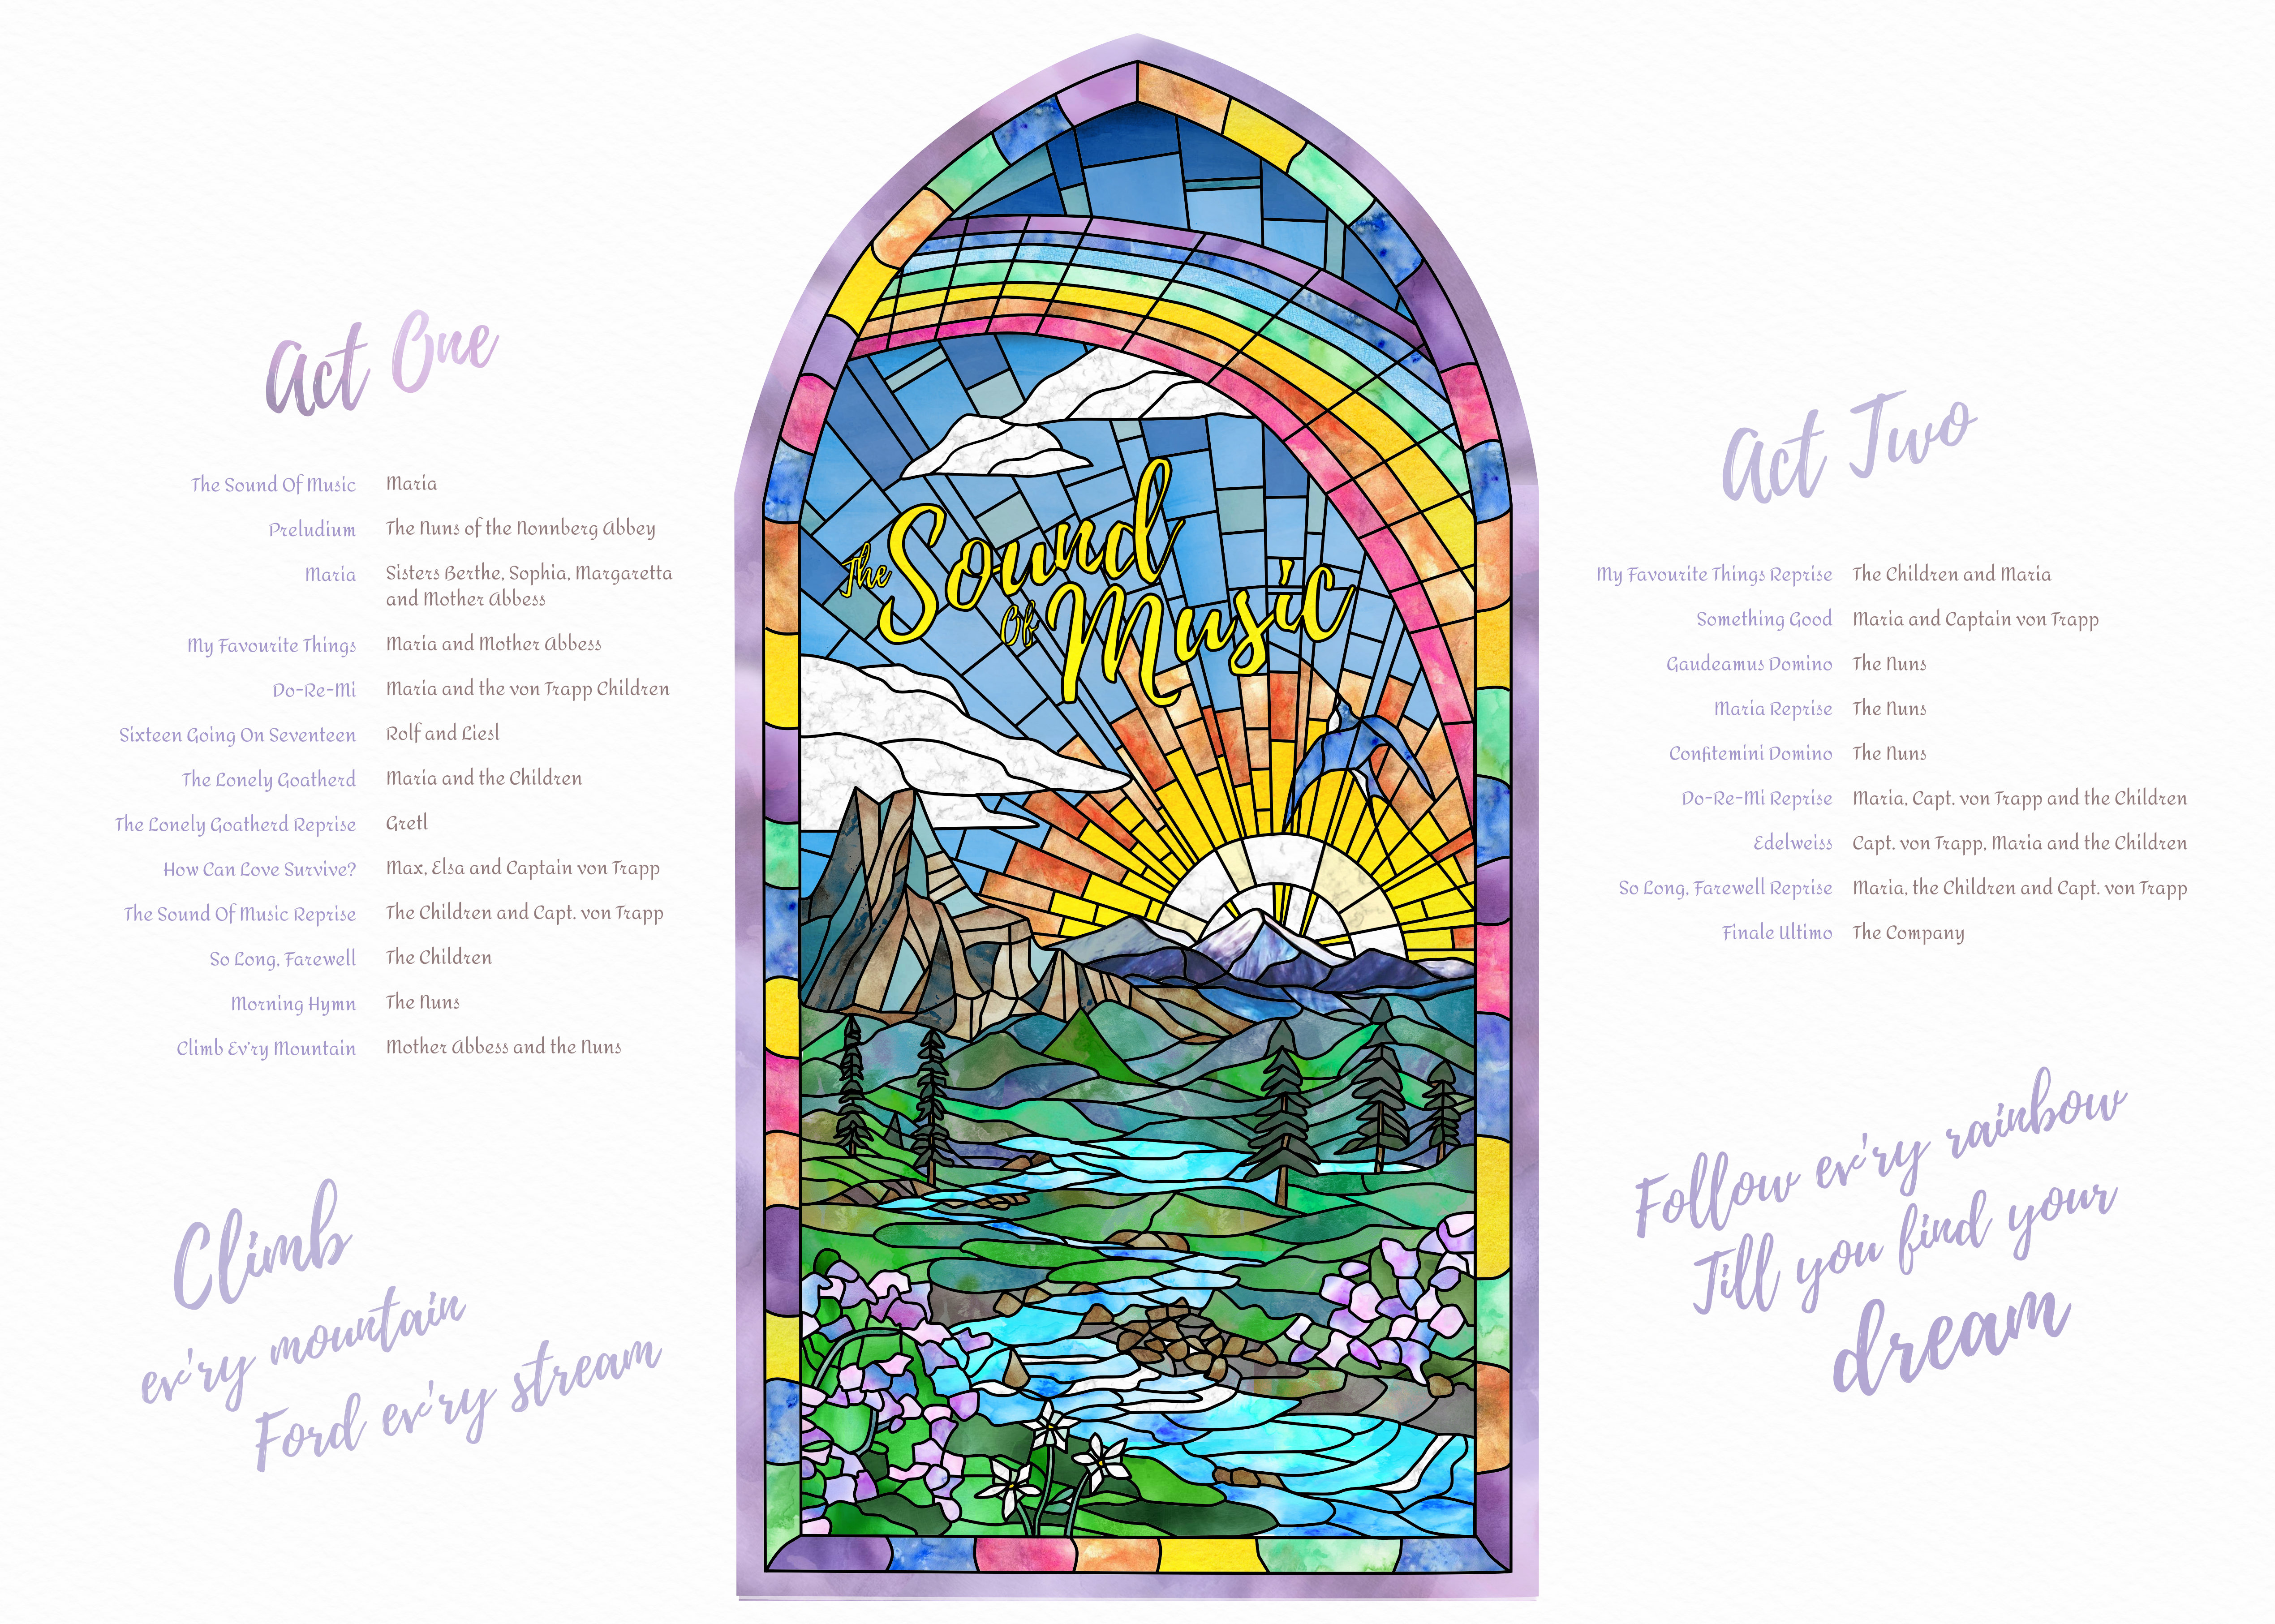 Act One
The Sound Of Music Maria
Preludium The Nuns of the Nonnberg Abbey
Maria Sisters Berthe, Sophia, Margaretta
and Mother Abbess
My Favourite Things Maria and Mother Abbess
Do-Re-Mi Maria and the von Trapp Children
Sixteen Going On Seventeen Rolf and Liesl
The Lonely Goatherd Maria and the Children
The Lonely Goatherd Reprise Gretl
How Can Love Survive? Max, Elsa and Captain von Trapp
The Sound Of Music Reprise The Children and Capt. von Trapp
So Long, Farewell The Children
Morning Hymn The Nuns
Climb Ev'ry Mountain Mother Abbess and the Nuns
Climb
ev'ry mountain
Ford ev'ry stream
The Sound
Of Music
Act Two
My Favourite Things Reprise The Children and Maria
Something Good Maria and Captain von Trapp
Gaudeamus Domino The Nuns
Maria Reprise The Nuns
Confitemini Domino The Nuns
Do-Re-Mi Reprise Maria, Capt. von Trapp and the Children
Edelweiss Capt. von Trapp, Maria and the Children
So Long, Farewell Reprise Maria, the Children and Capt. von Trapp
Finale Ultimo The Company
Follow ev'ry rainbow
Till you find your
dream